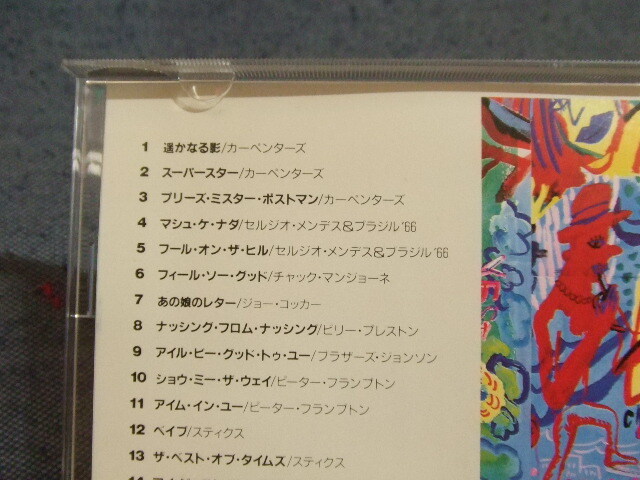 1 遥かなる影/カーペンターズ
2 スーパースター/カーペンターズ
3 プリーズ・ミスター・ポストマン/カーペンターズ
4 マシュ・ケ・ナダ/セルジオ・メンデス&ブラジル'66
5 フール・オン・ザ・ヒル/セルジオ・メンデス&ブラジル'66
6 フィール・ソー・グッド/チャック・マンジョーネ
7 あの娘のレター/ジョー・コッカー
8 ナッシング・フロム・ナッシング/ビリー・プレストン
9 アイル・ビー・グッド・トゥ・ユー/ブラザーズ・ジョンソン
10 ショウ・ミー・ザ・ウェイ/ピーター・フランプトン
11 アイム・イン・ユー/ピーター・フランプトン
12 ベイブ/スティクス
13 ザ・ベスト・オブ・タイムズ/スティクス